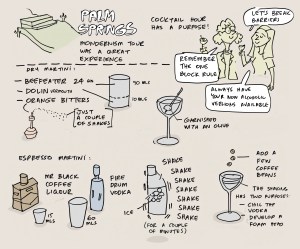 PALM
SPRINGS
MODERNISM TOUR
WAS A GREAT
EXPERIENCE
COCKTAIL HOUR
HAS A PURPOSE!
LET'S BREAK
BARRIERS
REMEMBER
THE ONE
BLOCK RULE
ALWAYS HAVE
YOUR NON ALCOHOLIC
VERSIONS AVAILABLE
DRY MARTINI:
BEEFEATER 24 GIN
90 MLS
DOLIN VERMOUTH
10 MLS
ORANGE BITTERS
JUST A
COUPLE
OF SHAKES
GARNISHED
WITH AN OLIVE
ESPRESSO MARTINI:
MR BLACK
COFFEE
LIQUEUR
FIRE
DRUM
VODKA
15
MLS
60
MLS
ICE
SHAKE
SHAKE
SHAKE
SHAKE
SHAKE
SHAKE
SHAKE
(FOR A COUPLE
OF MINUTES)
ADD A
FEW
COFFEE
BEANS
THE SHAKING
HAS TWO PURPOSES:
CHILL THE
VODKA
DEVELOP A
FOAM HEAD